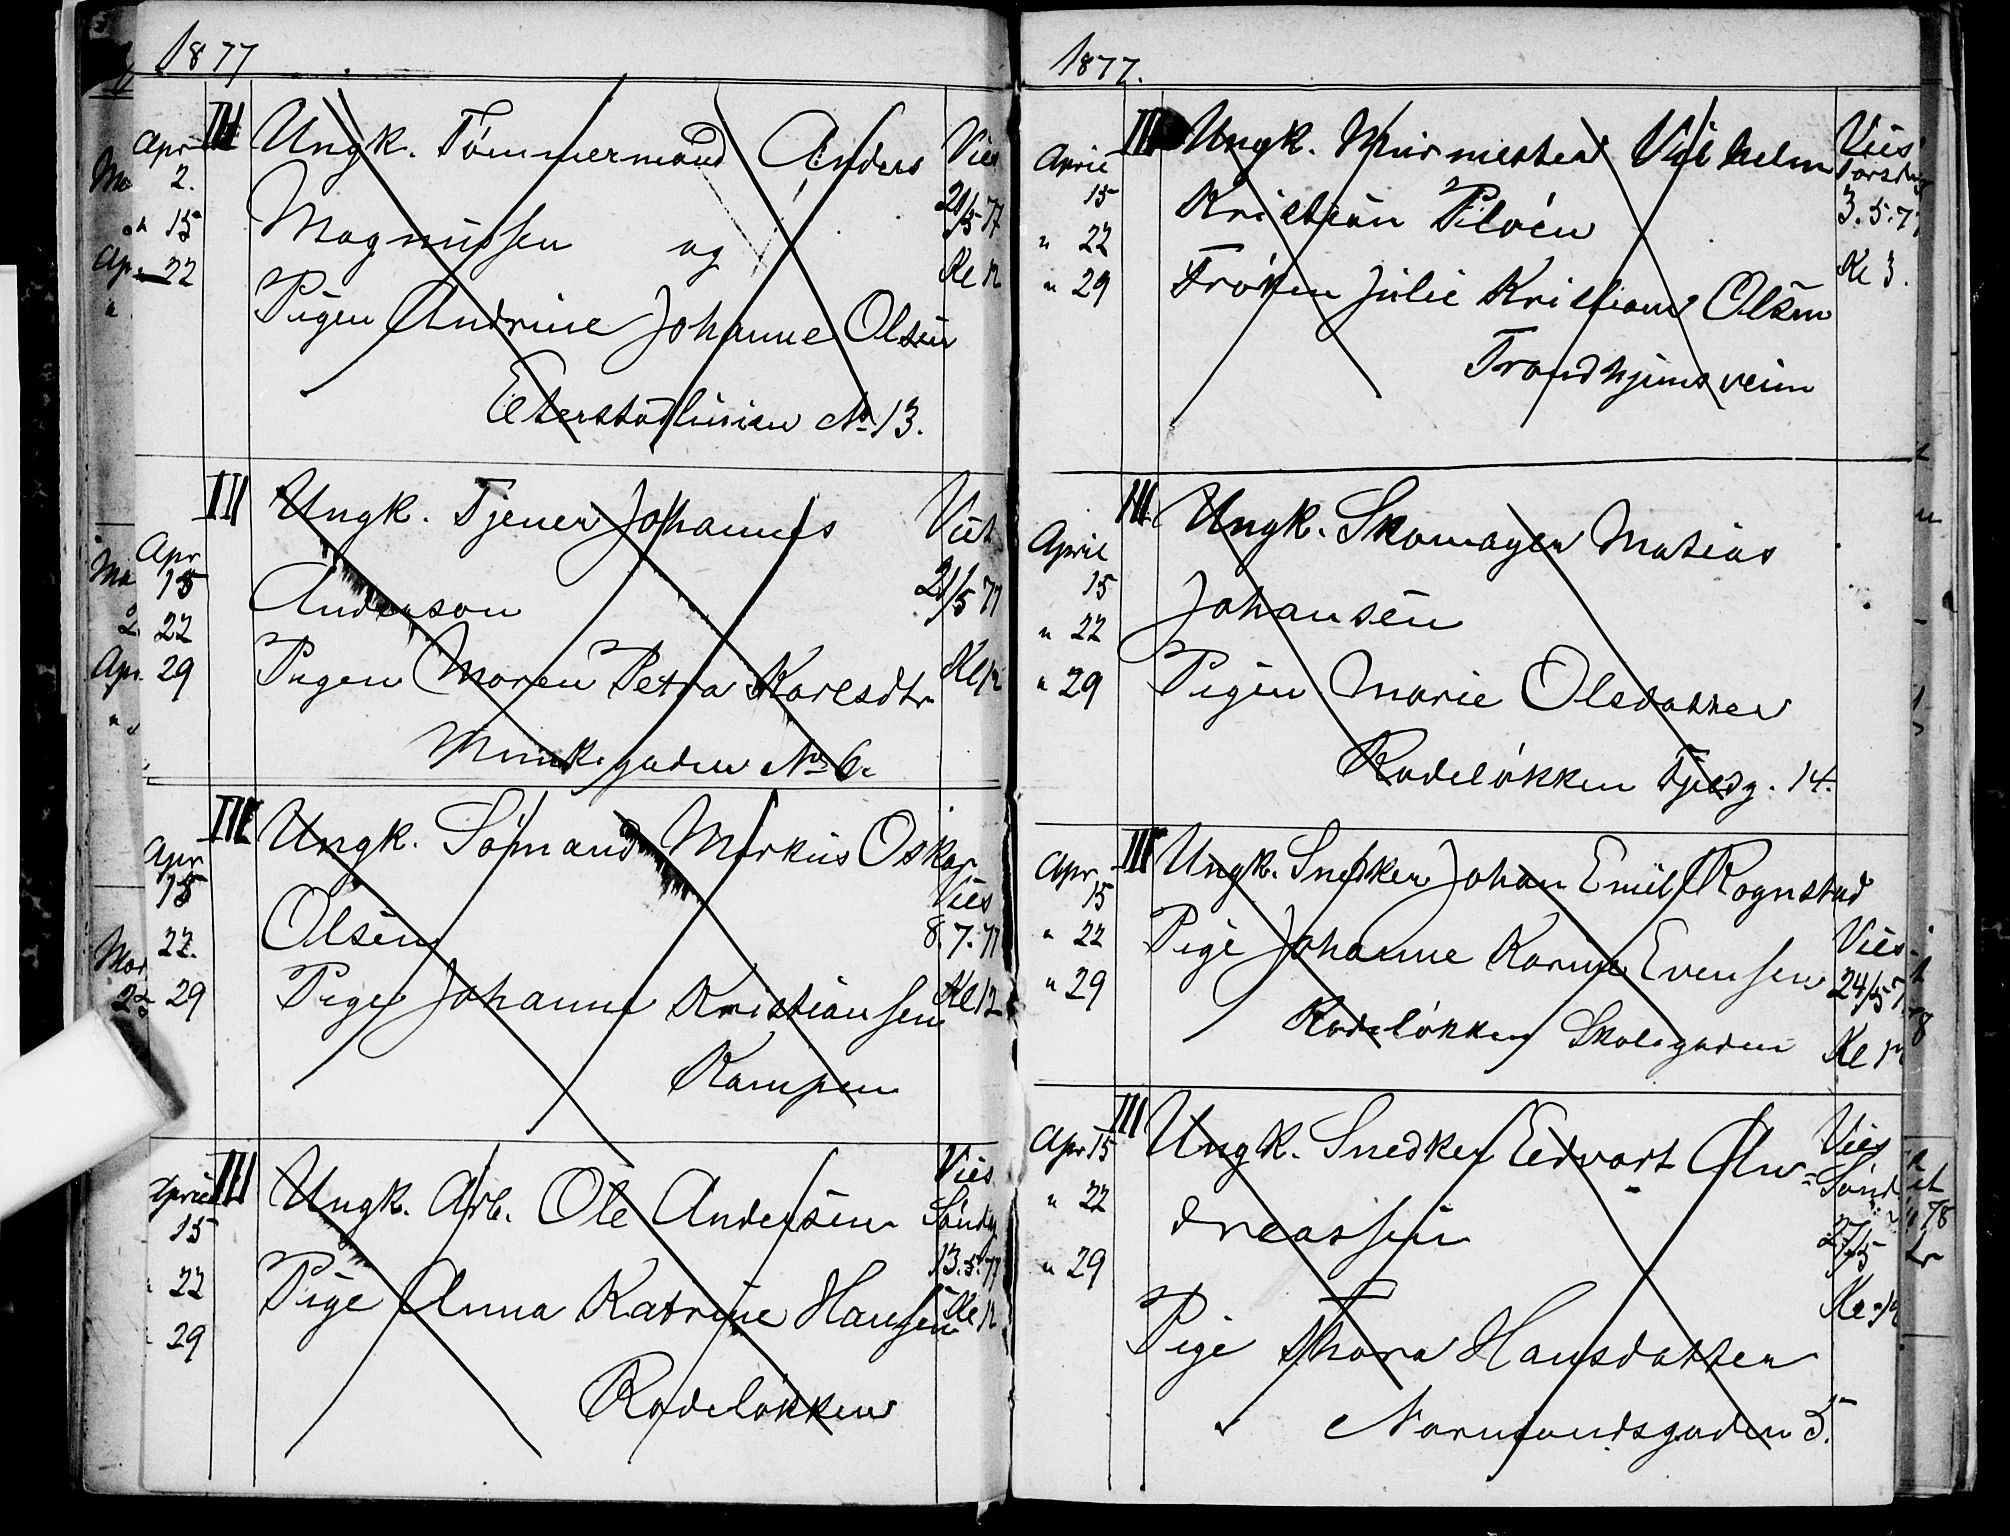 1877
Apr III Ungk. Tømmermand Anders Vies
2. 
15 Magnussen og 21/5 77
22 Kl 12
Pigen Andrine Johanne Olsen
Eterstadlinien No 13.
III Ungk. Tjener Johannes Viet
Apr
15 Anderson 21/5 77
22
29 Pigen Maren Petra Karlsdtr Kl 12
Munkegaden No 6.
III Ungk. Sømand Markus Oskar
Apr
15 Vies
22. Olsen 8.7.77
29 Pige Johanne Kristiansen Kl 12
Kampen
April III Ungk. Arb. Ole Andersen Vies Søndg
15 13.5.77
22 Pige Anna Katrine Hansen Kl 12
29
Rodeløkken
1877.
April III Ungk. Murmester Vilhelm Vies Torsdag
15 Kristian Piløen 3.5.77
" 22 Kl 3.
" 29 Frøken Julie Kristiane Olsen
Trondhjemsveien
III Ungk. Skomager Matias
April
15 Johansen
" 22
" 29 Pigen Marie Olsdatter
Rodeløkken Fjeldg. 14.
Apr. III Ungk. Snedker Johan Emil Rognstad
15
" 22 Pige Johanne Karine Evensen Vies
" 29 24/5 7
Rodeløkken Skolegaden Kl 12
Apr 15 III Ungk. Snedker Edvart An- Vies
" 22 dreassen Sønd
" 29 27/5
Kl 12
Pige Thora Hansdatter
Normandsgaden 5.